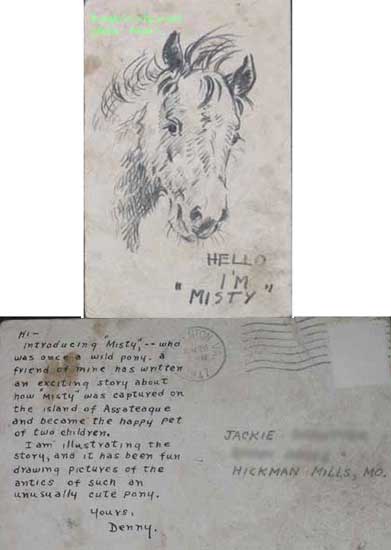 HELLO
I'M
"MISTY"
Hi—
Introducing "Misty",-- who
was once a wild pony. A
friend of mine has written
an exciting story about
how "Misty" was captured on
the island of Assateague
and became the happy pet
of two children.
I am illustrating the
story, and it has been fun
drawing pictures of the
antics of such an
unusually cute pony.
Yours,
Denny.
JACKIE
HICKMAN MILLS, MO.